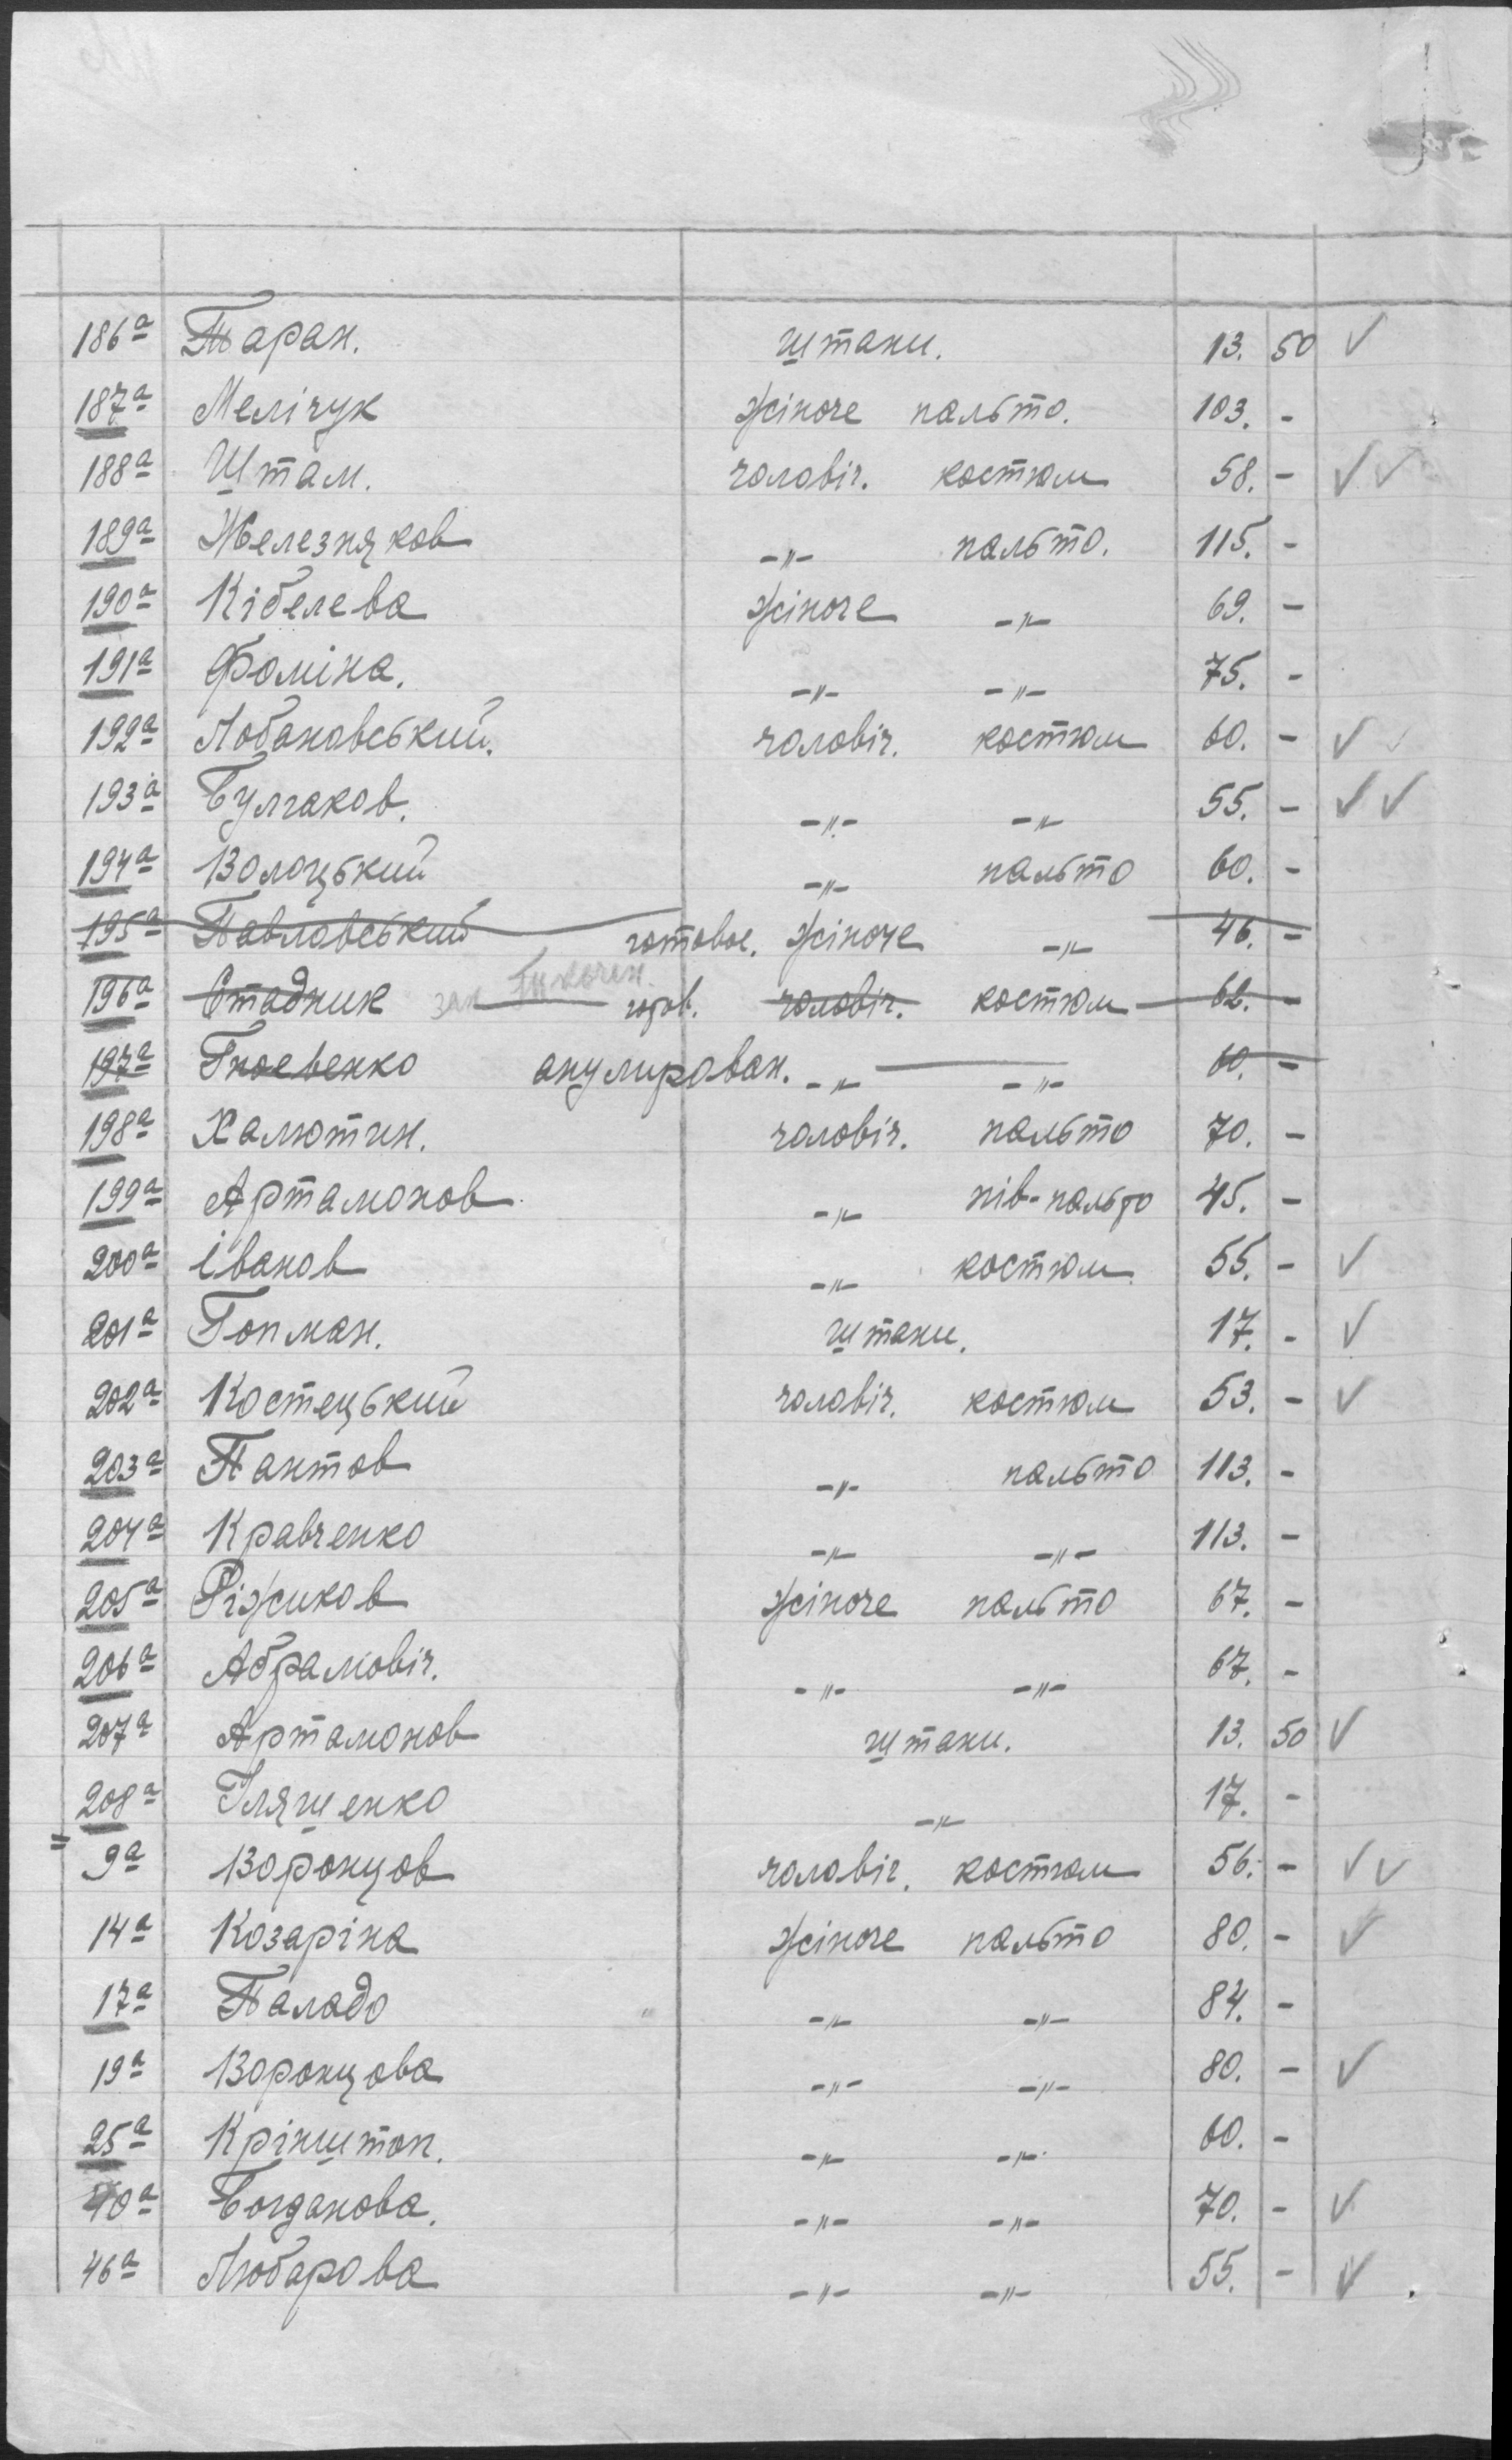 186а Таран. штани. 13. 50 ✓
187а Мелічук жіноче пальто. 103. -
188а Штам. чоловіч. костюм 58. - ✓✓
189а Железняков -"- пальто. 115. -
190а Кібелева жіноче -"- 69. -
191а Фоміна. -"- -"- 75. -
192а Лобановський. чоловіч. костюм 60. - ✓✓
193а Булгаков. -"- -"- 55. - ✓✓
194а Волоцький -"- пальто 60. -
195а Павловський готовое. жіноче -"- 46. -
196а Стадник гот. чоловіч. костюм 62. -
197а Гноевенко анулирован. -"- -"- 60. -
198а Халютин. чоловіч. пальто 70. -
199а Артамонов -"- пів-пальто 45. -
200а Іванов -"- костюм 55. - ✓
201а Гопман. штани. 17. - ✓
202а Костецький чоловіч. костюм 53. - ✓
203а Пантов -"- пальто 113. -
204а Кравченко -"- -"- 113. -
205а Ріжиков жіноче пальто 67. -
206а Абрамовіч. -"- -"- 67. -
207а Артамонов штани. 13. 50 ✓
208а Іляшенко -"- 17. -
= 9а Воронцов чоловіч. костюм 56. - ✓✓
14а Козаріна жіноче пальто 80. - ✓
17а Паладо -"- -"- 84. -
19а Воронцова -"- -"- 80. - ✓
25а Крінштоп. -"- -"- 60. -
40а Богданова. -"- -"- 70. - ✓
46а Любарова -"- -"- 55. - ✓